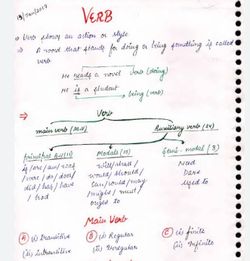 VERB
Verb shows an action or style
A word that stands for doing or being something is called
verb
He reads a novel verb (doing)
He is a student
being (verb)
Verb
main verb Auxiliary verb (24)
Modals (10) Semi-modal (3)
is/are/am/was
were/do/does/
did/has/have
/had
will/shall/
would/should/
can/could/may
/might/must/
ought to
Need
Dare
Used to
Main Verb
A (i) Transitive
(ii) Intransitive
B (i) Regular
(ii) Irregular
C (i) finite
(ii) Infinite